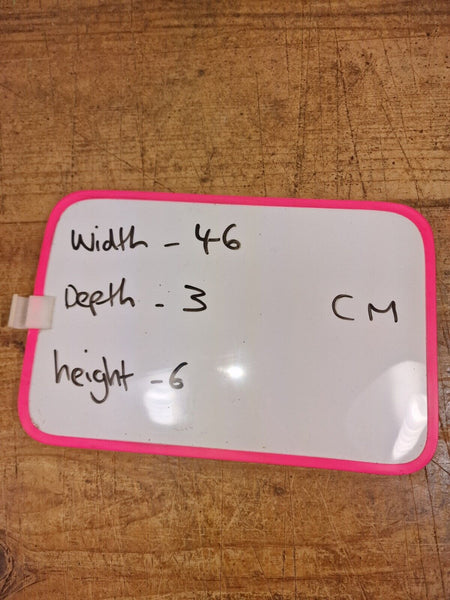 Width - 46
Depth - 3
CM
height - 6